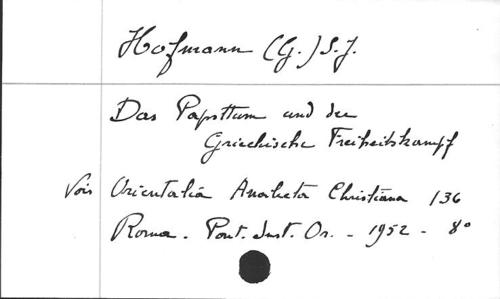 Hofmann (G.) S.J.
Das Papsttum und der
Griechische Freiheitskampf
Vois Orientalia Analecta Christiana 136
Roma. Pont. Inst. Or. - 1952 - 8°